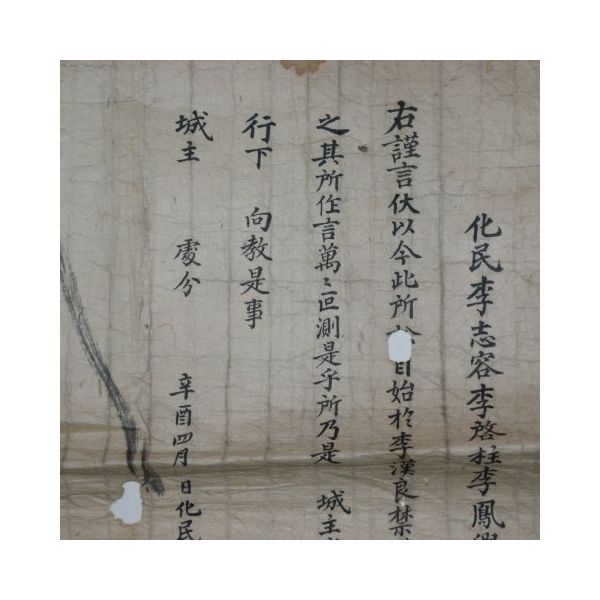 化民李志容李啓柱李鳳
右謹言伏以今此所 自始於李漢良禁
之其所作言萬〻叵測是乎所乃是 城主
行下 向教是事
城主 處分
辛酉四月 日化民